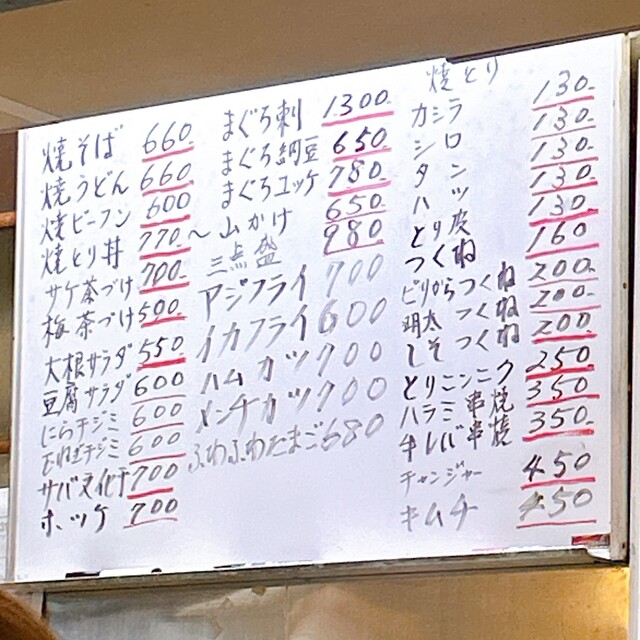 焼そば 660
焼うどん 660
焼ビーフン 600
焼とり丼 770〜
サケ茶づけ 700
梅茶づけ 500
大根サラダ 550
豆腐サラダ 600
にらチジミ 600
玉ねぎチジミ 600
サバ文化干 700
ホッケ 700
まぐろ刺 1300
まぐろ納豆 650
まぐろユッケ 780
山かけ 650
三点盛 980
アジフライ 700
イカフライ 600
ハムカツ 700
メンチカツ 700
ふわふわたまご 680
焼とり
カシラ 130
シロ 130
タン 130
ハツ 130
とり皮 130
つくね 160
ピリからつくね 200
明太つくね 200
しそつくね 200
とりニンニク 250
ハラミ串焼 350
牛レバ串焼 350
チャンジャー 450
キムチ 450